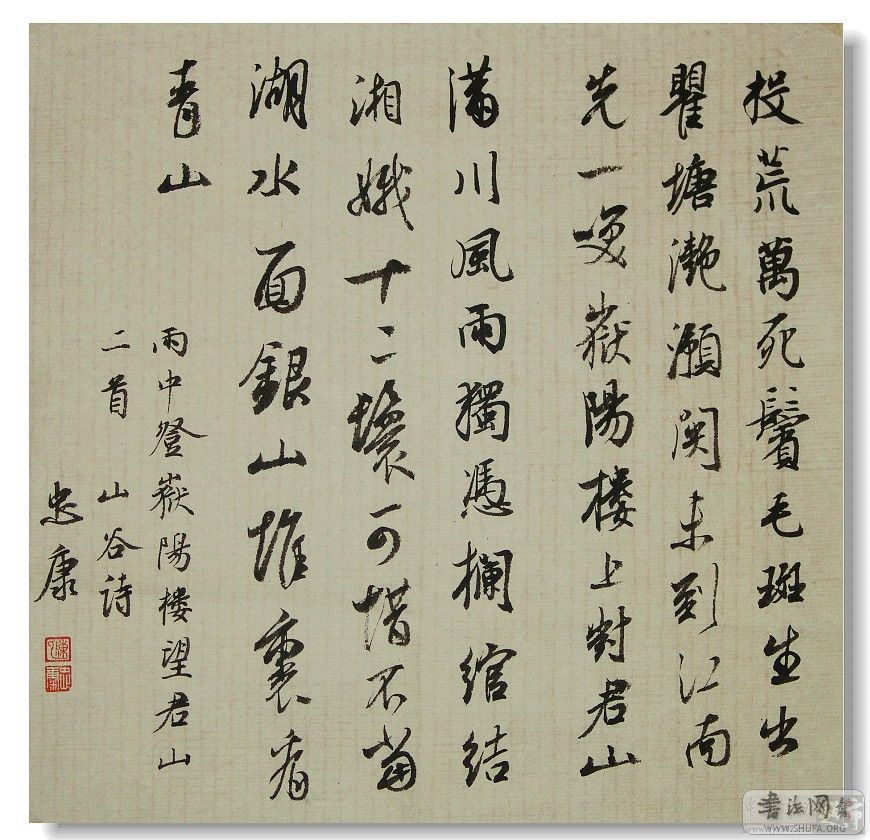 投荒萬死鬢毛斑生出
瞿塘灧澦関未到江南
先一咲嶽陽樓上對君山
滿川風雨獨憑欄綰結
湘娥十二鬟可惜不當
湖水面銀山堆裏看
青山
雨中登嶽陽樓望君山
二首 山谷詩
忠康
書法网
WWW.SHUFA.ORG